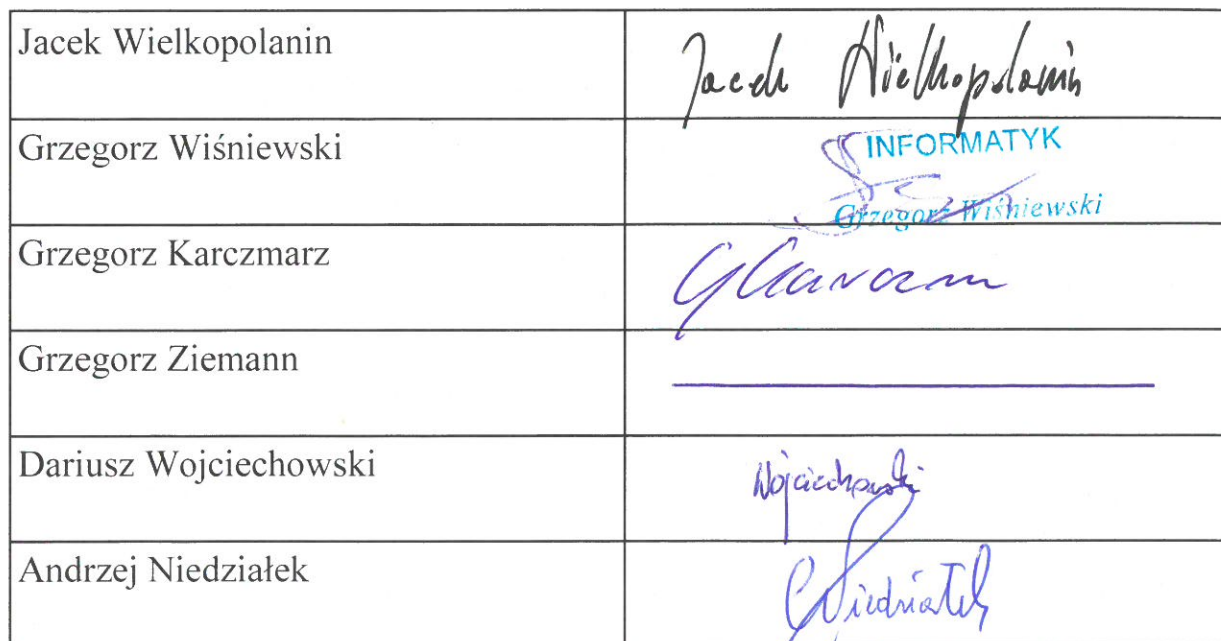 Jacek Wielkopolanin
Jacek Wielkopolanin
Grzegorz Wiśniewski
INFORMATYK
Grzegorz Wiśniewski
Grzegorz Karczmarz
Grzegorz Ziemann
Dariusz Wojciechowski
Wojciechowski
Andrzej Niedziałek
Niedziałek